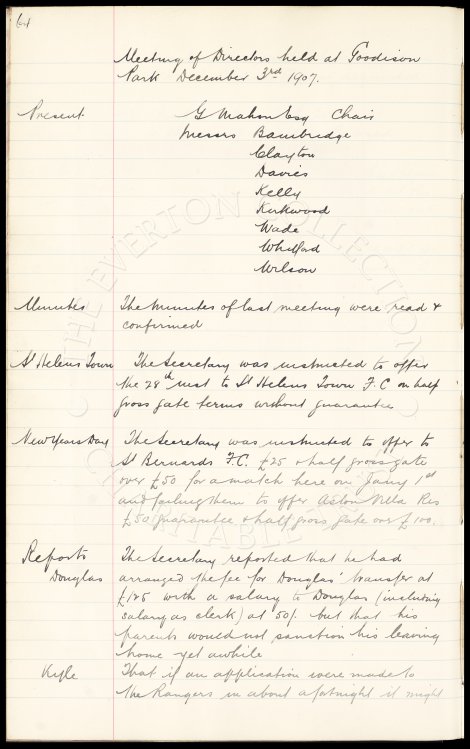 64
Meeting of Directors held at Goodison
Park December 3rd 1907.
Present G Mahon Esq Chair
Messrs Bainbridge
Clayton
Davies
Kelly
Kirkwood
Wade
Whitford
Wilson
Minutes The Minutes of last meeting were read &
confirmed
St Helens Town The Secretary was instructed to offer
the 28th inst to St Helens Town F.C on half
gross gate terms without guarantee
New Years Day The Secretary was instructed to offer to
St Bernards F.C. £25 & half gross gate
over £50 for a match here on Jany 1st
and failing them to offer Aston Villa Res
£50 guarantee & half gross gate over £100.
Reports The Secretary reported that he had
Douglas arranged the fee for Douglas' transfer at
£125 with a salary to Douglas (including
salary as clerk) at 50/- but that his
parents would not sanction his leaving
home yet awhile
Kyle That if an application were made to
the Rangers in about a fortnight it might
THE EVERTON COLLECTION
CHARITABLE